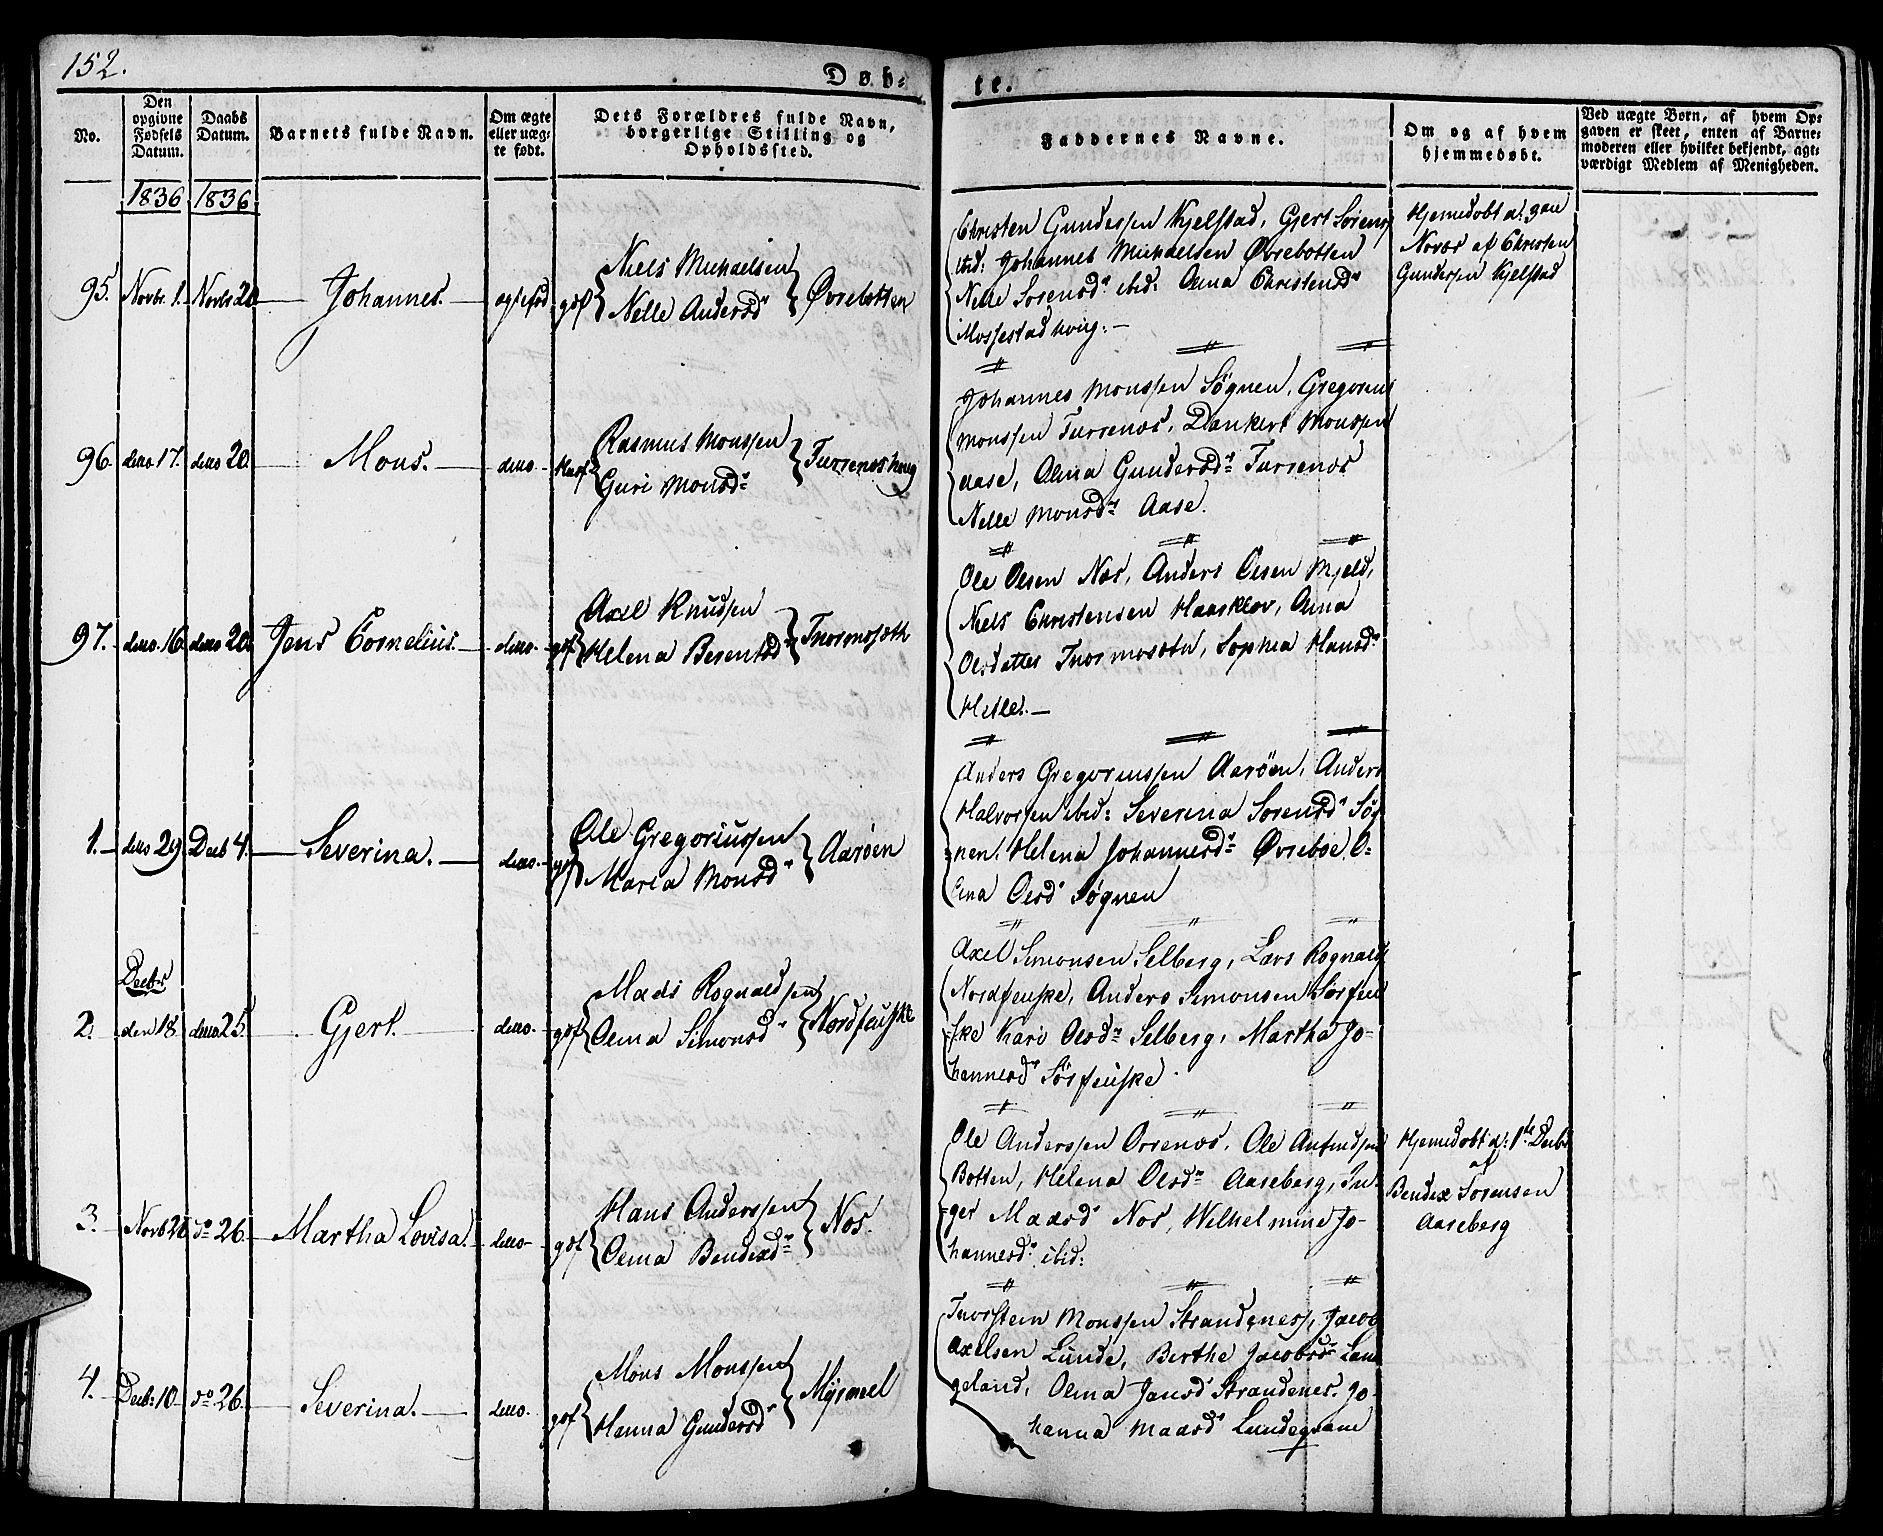 152.
Døb=
te.
No.
Den opgivne Fødsels Datum.
Daabs Datum.
Barnets fulde Navn.
Om ægte eller uæg- te født.
Dets Forældres fulde Navn, borgerlige Stilling og Opholdssted.
Faddernes Navne.
Om og af hvem hjemmedøbt.
Ved uægte Børn, af hvem Op- gaven er skeet, enten af Barne- moderen eller hvilket bekjendt, agt- værdigt Medlem af Menigheden.
1836 1836
95. Novbr. 1. Novbr 20 Johannes.
gdf Niels Michaelsen
Nelle Andersd. Øvrebotten
Christen Gundersen Kjelstad, Gjert Sørens
ibid: Johannes Michaelsen Øvrebotten
Nelle Sørensd. ibid: Christensd.
Hjemedøbt d. 3die
Novbr af Christen
Gundersen Kjelstad
96. ditto 17. ditto 20. Mons. ditto.
Rasmus Monssen
Guri Monsd.
Johannes Monssen Søgnen, Gregorius
Monssen Dankert Monssen
Aase, Olina Gundersd.
Nelle Monsd. Aase.
97. ditto. 16. ditto 20. Jens Cornelius. ditto.
gdf Axel Knudsen
Helena Berentsd.
Ole Olsen Næs, Anders Olsen Mjeld,
Niels Christensen Haaskløv, Olina
Olsdatter Sophia Hansd.
Helle.
1. ditto 29 Decb 4. Severina. ditto.
gdf Ole Gregoriussen
Maria Monsd. Aarøen
Anders Gregoriussen Aarøen, Anders
Halvorsen ibid: Severina Sørensd. Søg-
nen. Helena Johannesd. Øvrebøe. O=
lina Olesd. Søgnen
Decbr
2. den 18. ditto 25. Gjert. ditto.
gdf Mads Rognaldsen
Olina Simonsd. Nordfeuske
Axel Simonsen Selberg, Lars Rognalds
Nordfeuske, Anders Simonsen Sørfeu
ske Kari Olesd. Selberg, Martha Jo-
hannesd. Sørfeuske.
3. Novb 26 do 26. Martha Lovisa. ditto
gdf Hans Anderssen
Olina Bendixd. Næs.
Ole Anderssen Ole
Botten, Helena Olesd. Aaseberg, In-
ger Madsd. Næs, Wilhelmine Jo-
hannesd. ibid:
Hjemedøbt d: 1te Decbr
af
Bendix Sørensen
Aaseberg
4. Decbr 10 do 26. Severina. ditto.
gdf Mons Monssen
Hanna Gundersd. Myrmel
Thorstein Monssen Strandenes, Jacob
Axelsen Lunde, Berthe Jacobsd. Lan
geland, Olina Jansd. Strandenes. Jo-
hanna Madsd.